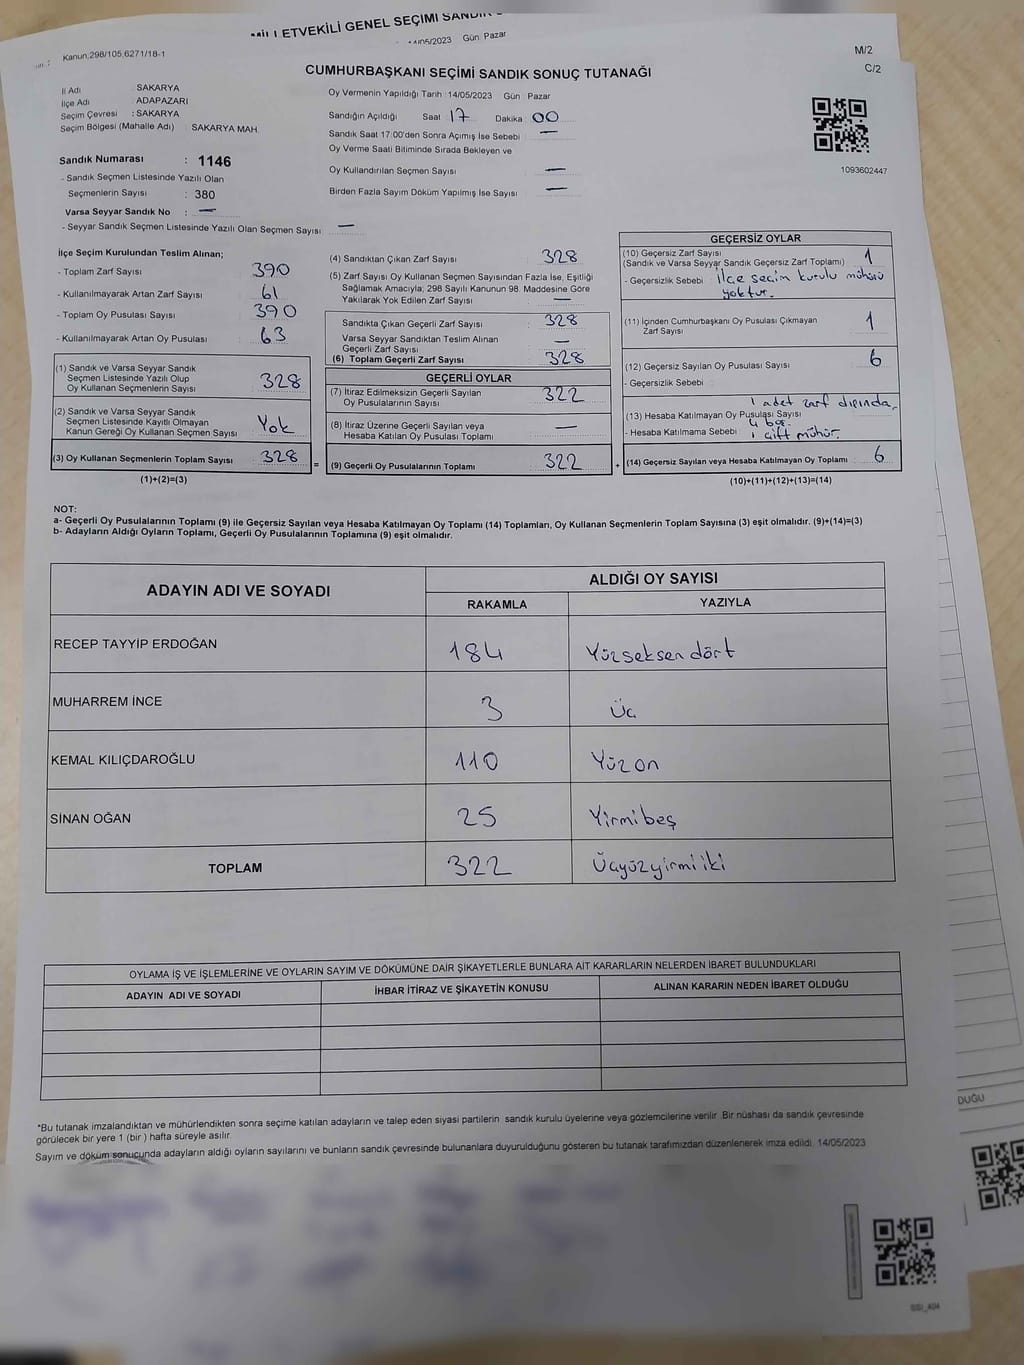 MİLLETVEKİLİ GENEL SEÇİMİ SANDIK
14/05/2023 Gün: Pazar
Kanun;298/105,6271/18-1
M/2
C/2
CUMHURBAŞKANI SEÇİMİ SANDIK SONUÇ TUTANAĞI
İl Adı : SAKARYA
İlçe Adı : ADAPAZARI
Seçim Çevresi : SAKARYA
Seçim Bölgesi (Mahalle Adı) : SAKARYA MAH.
Oy Vermenin Yapıldığı Tarih : 14/05/2023 Gün : Pazar
Sandığın Açıldığı Saat 17 Dakika 00
Sandık Saat 17:00'den Sonra Açımış İse Sebebi : —
Oy Verme Saati Bitiminde Sırada Bekleyen ve
Oy Kullandırılan Seçmen Sayısı : —
Birden Fazla Sayım Döküm Yapılmış İse Sayısı : —
1093602447
Sandık Numarası : 1146
- Sandık Seçmen Listesinde Yazılı Olan
Seçmenlerin Sayısı : 380
Varsa Seyyar Sandık No : —
- Seyyar Sandık Seçmen Listesinde Yazılı Olan Seçmen Sayısı : —
İlçe Seçim Kurulundan Teslim Alınan;
- Toplam Zarf Sayısı : 390
- Kullanılmayarak Artan Zarf Sayısı : 61
- Toplam Oy Pusulası Sayısı : 390
- Kullanılmayarak Artan Oy Pusulası : 63
(1) Sandık ve Varsa Seyyar Sandık
Seçmen Listesinde Yazılı Olup
Oy Kullanan Seçmenlerin Sayısı : 328
(2) Sandık ve Varsa Seyyar Sandık
Seçmen Listesinde Kayıtlı Olmayan
Kanun Gereği Oy Kullanan Seçmen Sayısı : Yok
(3) Oy Kullanan Seçmenlerin Toplam Sayısı : 328
(1)+(2)=(3)
=
(4) Sandıktan Çıkan Zarf Sayısı : 328
(5) Zarf Sayısı Oy Kullanan Seçmen Sayısından Fazla İse, Eşitliği
Sağlamak Amacıyla; 298 Sayılı Kanunun 98. Maddesine Göre
Yakılarak Yok Edilen Zarf Sayısı : —
Sandıkta Çıkan Geçerli Zarf Sayısı : 328
Varsa Seyyar Sandıktan Teslim Alınan
Geçerli Zarf Sayısı : —
(6) Toplam Geçerli Zarf Sayısı : 328
GEÇERLİ OYLAR
(7) İtiraz Edilmeksizin Geçerli Sayılan
Oy Pusulalarının Sayısı : 322
(8) İtiraz Üzerine Geçerli Sayılan veya
Hesaba Katılan Oy Pusulası Toplamı : —
(9) Geçerli Oy Pusulalarının Toplamı : 322
+
GEÇERSİZ OYLAR
(10) Geçersiz Zarf Sayısı
(Sandık ve Varsa Seyyar Sandık Geçersiz Zarf Toplamı) : 1
- Geçersizlik Sebebi : İlçe seçim kurulu mührü
yoktur.
(11) İçinden Cumhurbaşkanı Oy Pusulası Çıkmayan
Zarf Sayısı : 1
(12) Geçersiz Sayılan Oy Pusulası Sayısı : 6
- Geçersizlik Sebebi :
1 adet zarf dışında,
(13) Hesaba Katılmayan Oy Pusulası Sayısı : 4 boş.
- Hesaba Katılmama Sebebi : 1 çift mühür.
(14) Geçersiz Sayılan veya Hesaba Katılmayan Oy Toplamı : 6
(10)+(11)+(12)+(13)=(14)
NOT:
a- Geçerli Oy Pusulalarının Toplamı (9) ile Geçersiz Sayılan veya Hesaba Katılmayan Oy Toplamı (14) Toplamları, Oy Kullanan Seçmenlerin Toplam Sayısına (3) eşit olmalıdır. (9)+(14)=(3)
b- Adayların Aldığı Oyların Toplamı, Geçerli Oy Pusulalarının Toplamına (9) eşit olmalıdır.
ADAYIN ADI VE SOYADI
ALDIĞI OY SAYISI
RAKAMLA YAZIYLA
RECEP TAYYİP ERDOĞAN 184 Yüzseksen dört
MUHARREM İNCE 3 Üç
KEMAL KILIÇDAROĞLU 110 Yüzon
SİNAN OĞAN 25 Yirmibeş
TOPLAM 322 Üçyüzyirmiiki
OYLAMA İŞ VE İŞLEMLERİNE VE OYLARIN SAYIM VE DÖKÜMÜNE DAİR ŞİKAYETLERLE BUNLARA AİT KARARLARIN NELERDEN İBARET BULUNDUKLARI
ADAYIN ADI VE SOYADI İHBAR İTİRAZ VE ŞİKAYETİN KONUSU ALINAN KARARIN NEDEN İBARET OLDUĞU
DUĞU
*Bu tutanak imzalandıktan ve mühürlendikten sonra seçime katılan adayların ve talep eden siyasi partilerin sandık kurulu üyelerine veya gözlemcilerine verilir. Bir nüshası da sandık çevresinde
görülecek bir yere 1 (bir ) hafta süreyle asılır.
Sayım ve döküm sonucunda adayların aldığı oyların sayılarını ve bunların sandık çevresinde bulunanlara duyurulduğunu gösteren bu tutanak tarafımızdan düzenlenerek imza edildi. 14/05/2023